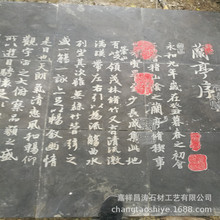 蘭亭序
永和九年歲在癸丑暮春之初會
山陰之蘭亭脩禊事
至少長咸集此地
崇山
峻領茂林脩竹又有清流激
湍暎帶左右引以為流觴曲水
列坐其次雖無絲竹管弦之
盛一觴一詠亦足以暢敘幽情
是日也天朗氣清惠風和暢仰
觀宇宙之大俯察品類之盛
所以遊目騁
嘉祥昌涛石材工艺有限公司
changtaoshiye.1688.com